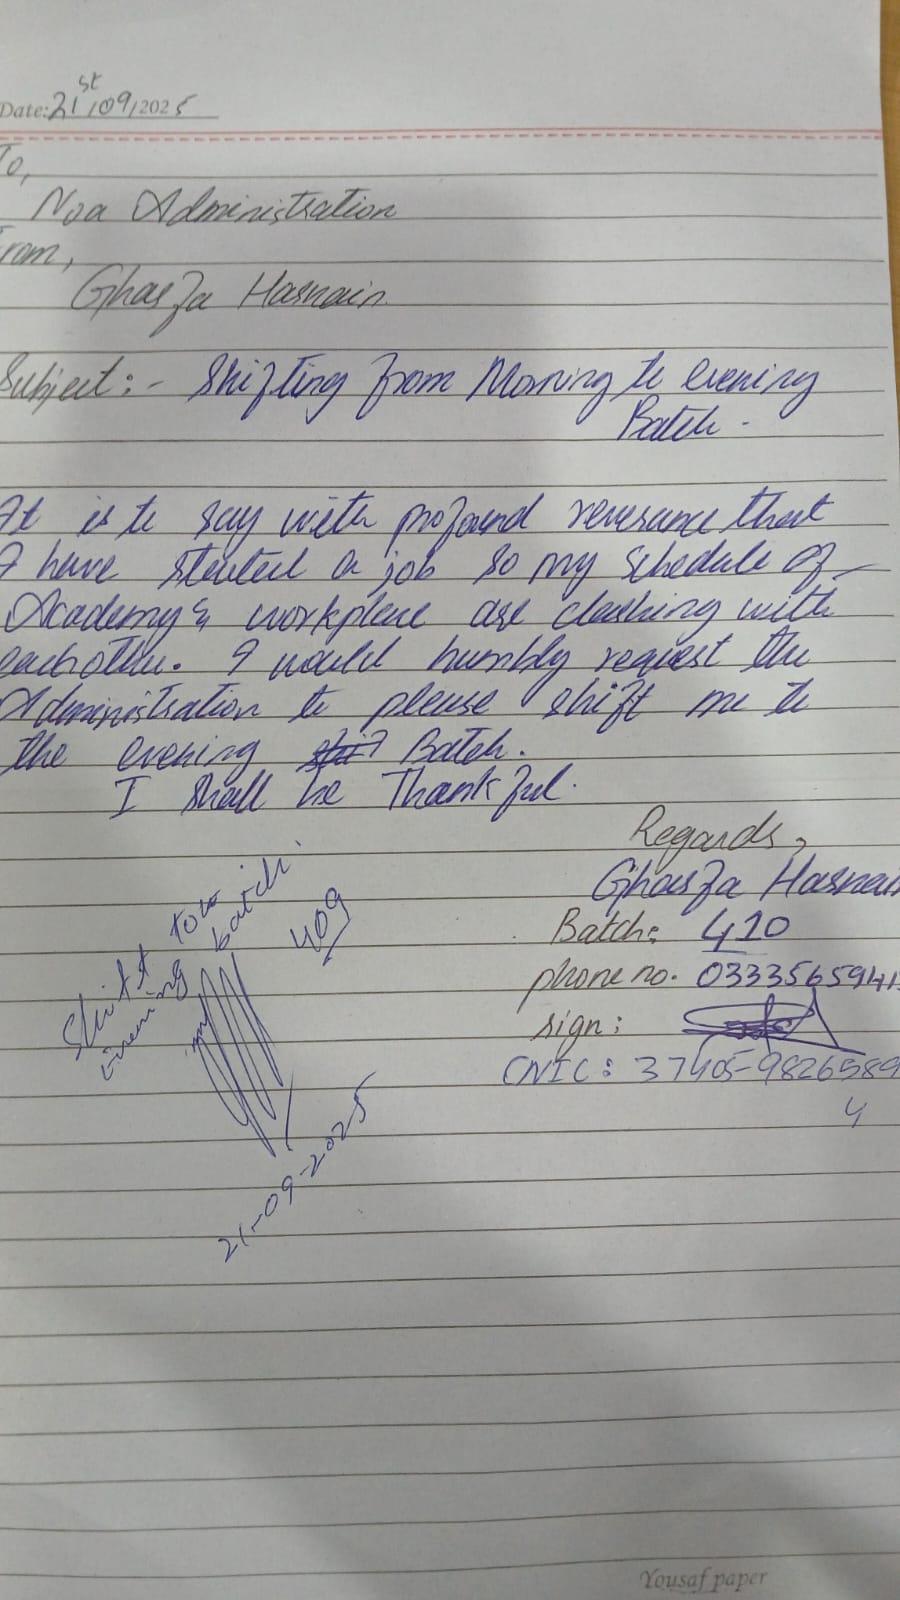 Date: 21st/09/2025
To,
Noa Administration
From,
Ghasfa Hasnain
Subject:- Shifting from Morning to evening
Batch.
It is to say with profound reversance that
I have started a job so my schedule of
Academy & workplace are clashing with
eachother. I would humbly request the
Administration to please shift me to
the evening Batch.
I shall be Thankful.
Regards,
Ghasfa Hasnain
Batch: 410
phone no. 03335659413
sign:
CNIC: 37405-9826589
4
Shift to
evening batch.
409
21-09-2025
Yousaf paper